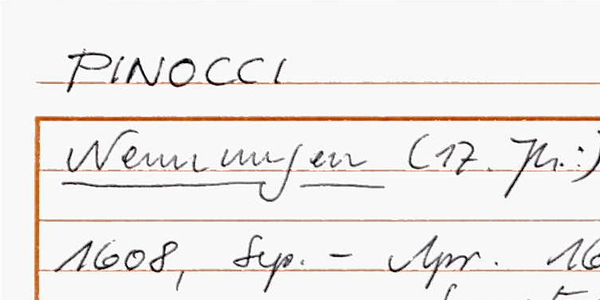 PINOCCI
Nennungen (17. Jh.:)
1608, Sep. - Apr. 16